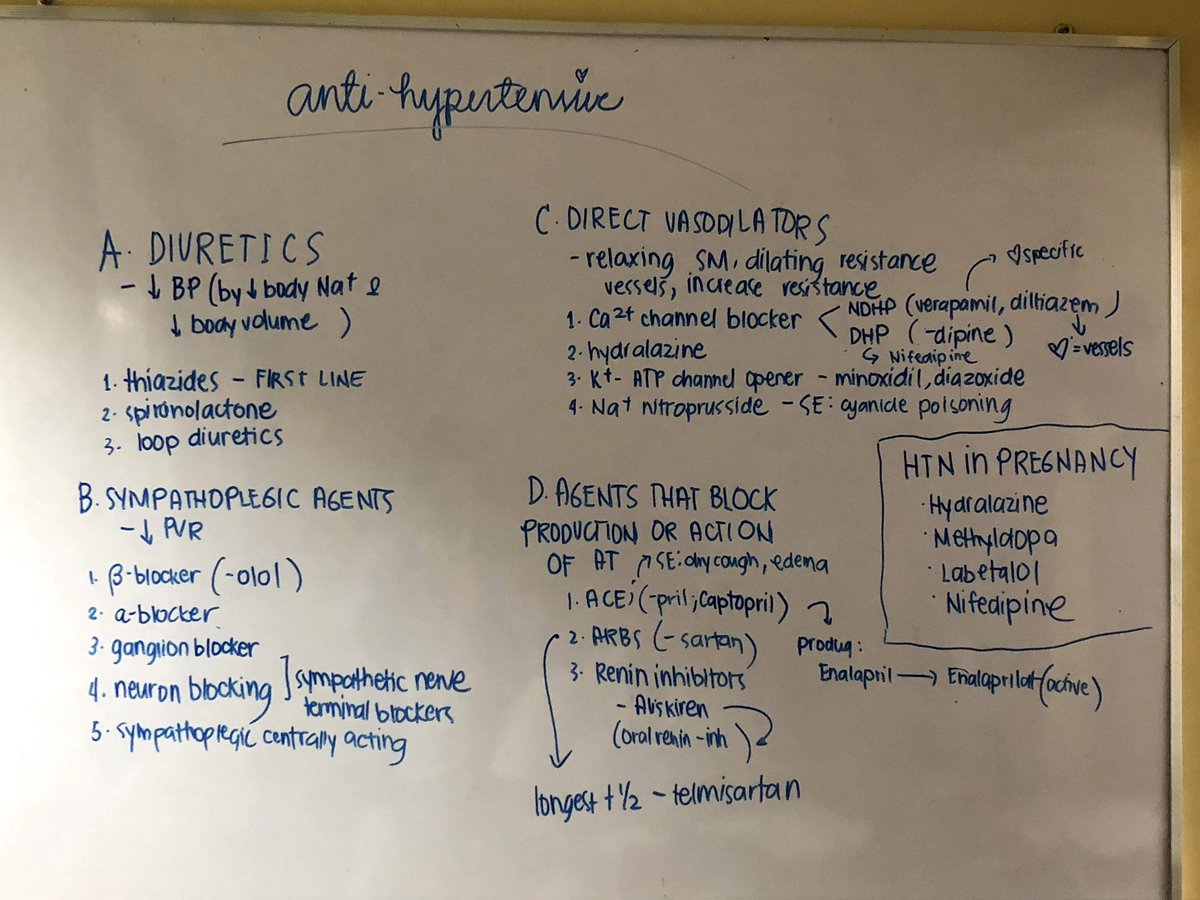 anti-hypertensive
A. DIURETICS
- ↓ BP (by ↓ body Na+ &
↓ body volume )
1. thiazides - FIRST LINE
2. spironolactone
3. loop diuretics
B. SYMPATHOPLEGIC AGENTS
- ↓ PVR
1. β-blocker (-olol)
2. α-blocker
3. ganglion blocker
4. neuron blocking ] sympathetic nerve
terminal blockers
5. sympathoplegic centrally acting
C. DIRECT VASODILATORS
- relaxing SM, dilating resistance
vessels, increase resistance
→ ♡ specific
1. Ca2+ channel blocker < NDHP (verapamil, diltiazem)
DHP (-dipine)
↳ Nifedipine
♡ = vessels
2. hydralazine
3. K+- ATP channel opener - minoxidil, diazoxide
4. Na+ nitroprusside - SE: cyanide poisoning
D. AGENTS THAT BLOCK
PRODUCTION OR ACTION
OF AT
↗ SE: dry cough, edema
1. ACEi (-pril; Captopril)
2. ARBS (-sartan)
3. Renin inhibitors
- Aliskiren
(oral renin-inh)
longest t 1/2 - telmisartan
produg:
Enalapril → Enalaprilat (active)
HTN in PREGNANCY
· Hydralazine
· Methyldopa
· Labetalol
· Nifedipine